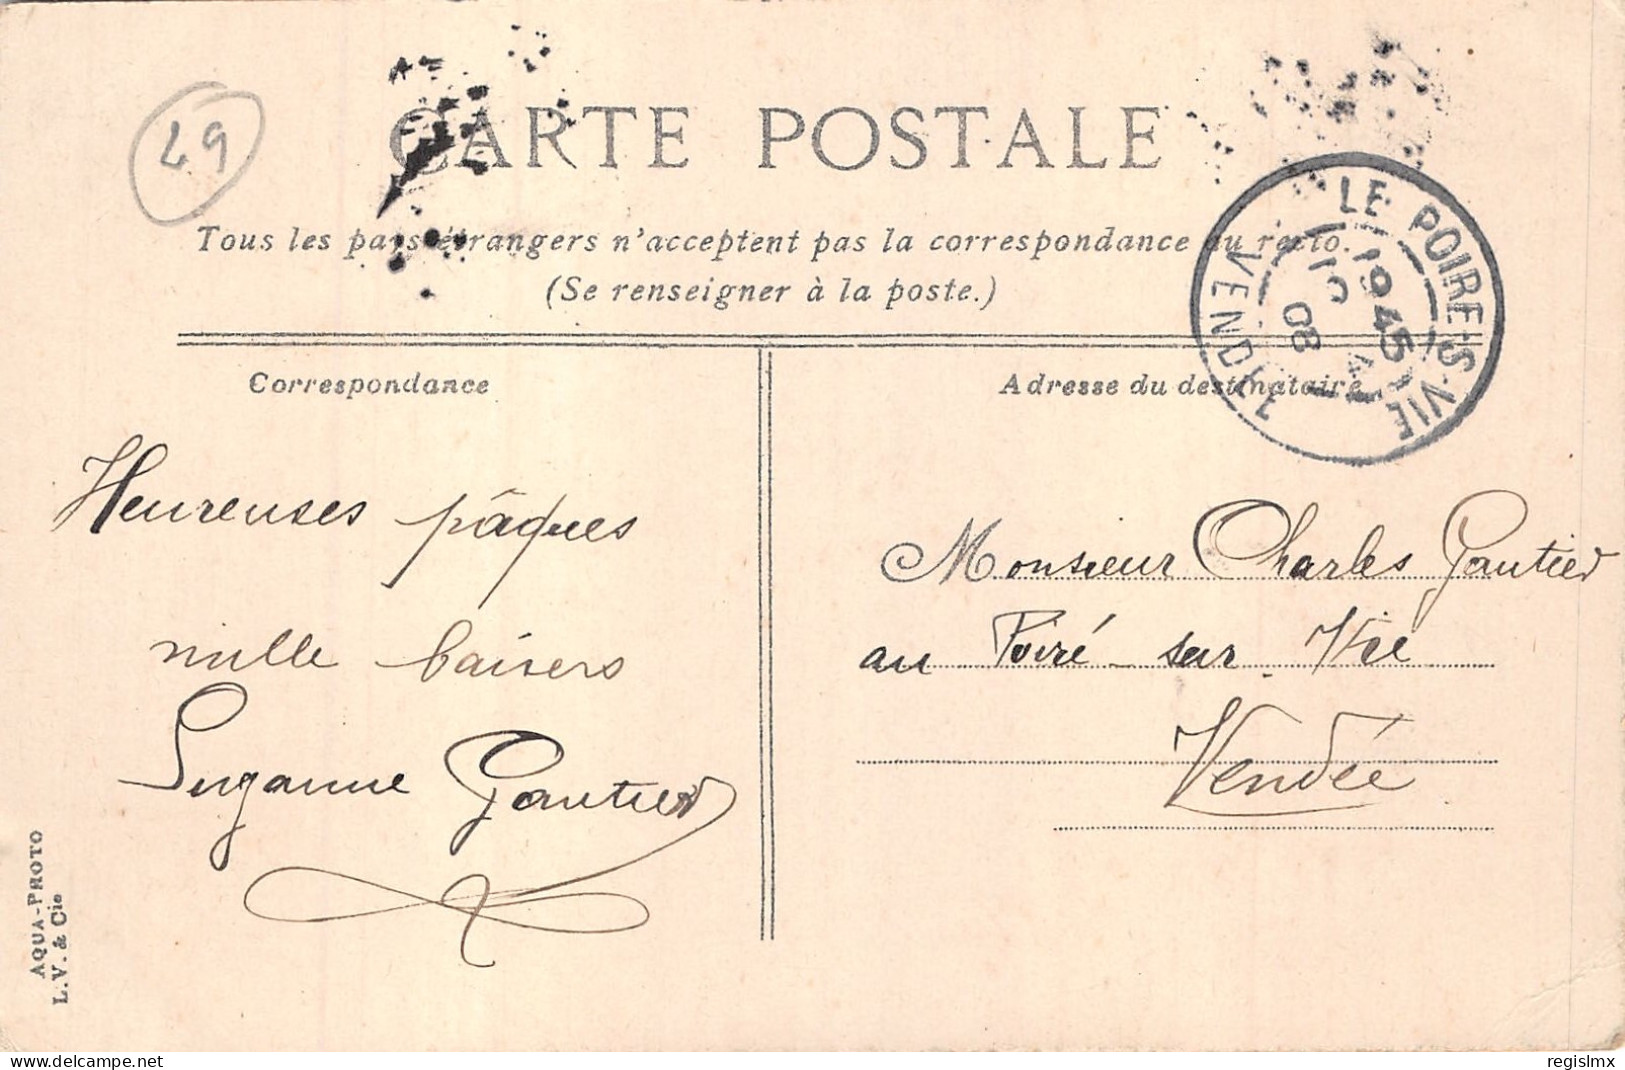 49
CARTE POSTALE
Tous les pays étrangers n'acceptent pas la correspondance au recto.
(Se renseigner à la poste.)
LE POIRE-S-VIE
19 45
10
08
VENDÉE
Correspondance
Adresse du destinataire
Heureuses pâques
mille baisers
Suzanne Gautier
Monsieur Charles Gautier
au Poiré-sur Vie
Vendée
AQUA-PHOTO
L. V. & Cie
https://www.delcampe.net
regislmx